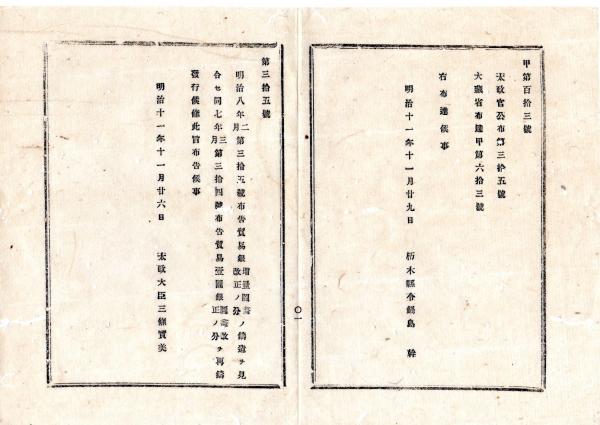 甲第百拾三號
太政官公布第三拾五號
大藏省布達甲第六拾三號
右布達候事
明治十一年十一月廿九日　栃木縣令鍋島　幹
〇一
第三拾五號
明治八年二月第三拾五號布告貿易銀増量圖畵改正ノ分鑄造ヲ見
合セ同七年三月第三拾四號布告貿易壹圓銀圖畵改正ノ分ヲ再鑄
發行候條此旨布告候事
明治十一年十一月廿六日　太政大臣三條實美